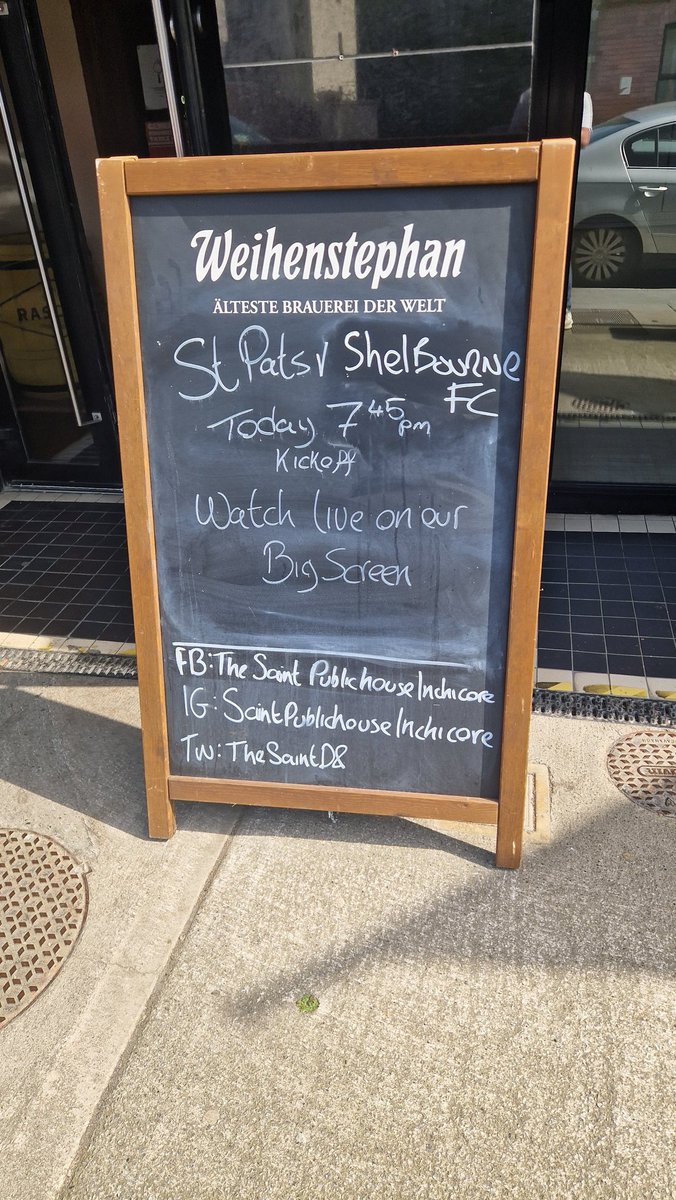 Weihenstephan
ÄLTESTE BRAUEREI DER WELT
St Pats v Shelbourne
FC
Today 7 45 pm
Kickoff
Watch live on our
Big Screen
FB: The Saint Publichouse Inchicore
IG: SaintPublichouse Inchicore
Tw: TheSaintD8
RAS